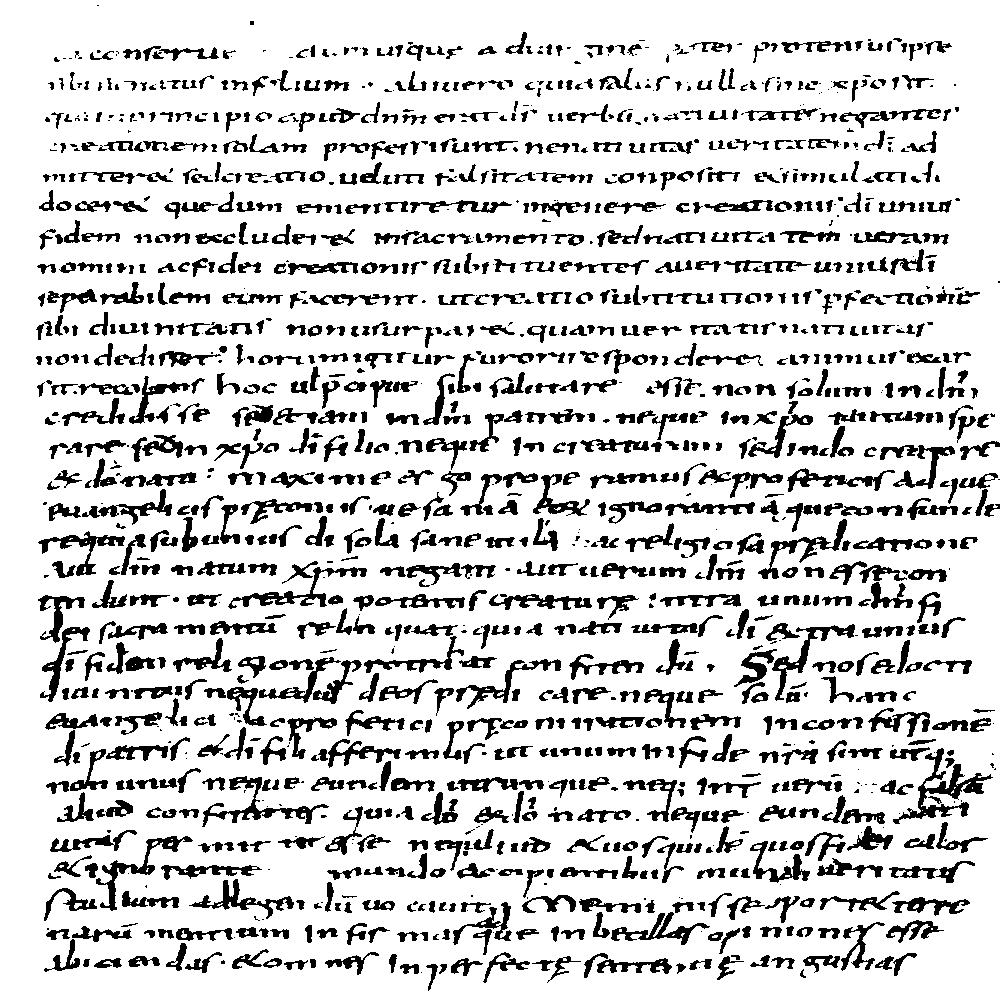 conserue dum usque ad virginẽ pater protenus ipse
sibi natus in filium. ab uero quia salus nulla sine xpõ sit.
qui in principio apud dnm erat ds uerbũ. natiuitatẽ negantes
creationem solam professi sunt. ne natiuitas ueritatem di ad
mitteret sed creatio. ueluti falsitatem conpositi & simulati di
docer& que dum ementiretur in genere creationis di unius
fidem non excluder& in sacramento. sed natiuitatem ueram
nomini ac fidei creationis substituentes a ueritate unius di
separabilem eum facerent. ut creatio subtitutionis pfectionẽ
sibi diuinitatis non usurpar&. quam ueritatis natiuitas
non dediss&. horum igitur furori respondere animus exar
sit. recolens hoc uel p̃cipue sibi salutare esse. non solum in dnm
credidisse sed etiam in dnm patrem. neque in xpo tantum spe
rare sed in xpo di filio. neque in creaturam sed in do creatore
& do nato: maxime ergo properamus & profeticis adque
euangelicis pręconiis uesaniã eoȝ ignorantiã que confunde
re qui a sub unius di sola sane utili ac religiosa prędicatione
aut dm natum xpm negant. aut uerum dm non esse con
tendunt. ut creatio potentis creaturę intra unum dm fi
dei sacramentũ relinquat. quia natiuitas di extra unius
di fidem religionẽ protrahat confitendũ. Sed nos edocti
diuinitus neque duos deos prędicare. neque solũ. hanc
euangelici ac profetici pręconii rationem in confissionẽ
di patris & di fili afferimus. ut unum in fide nr̃a sint utrq;
non unus neque eundem utrumque. neq; int̃ uerũ ac falsũ
aliud confitentes. quia do & do nato neque eundem nati
uitas permittit esse neq; aliud & uos quidẽ quos fidei calor
& ignorante mundo accipientibus mundi ueritatis
studium ad legendũ uocauit Meminisse oportet terre
narũ mentium infirmas que inbecillas opiniones esse
abiciendas. & omnes inperfectę sentencię angustias